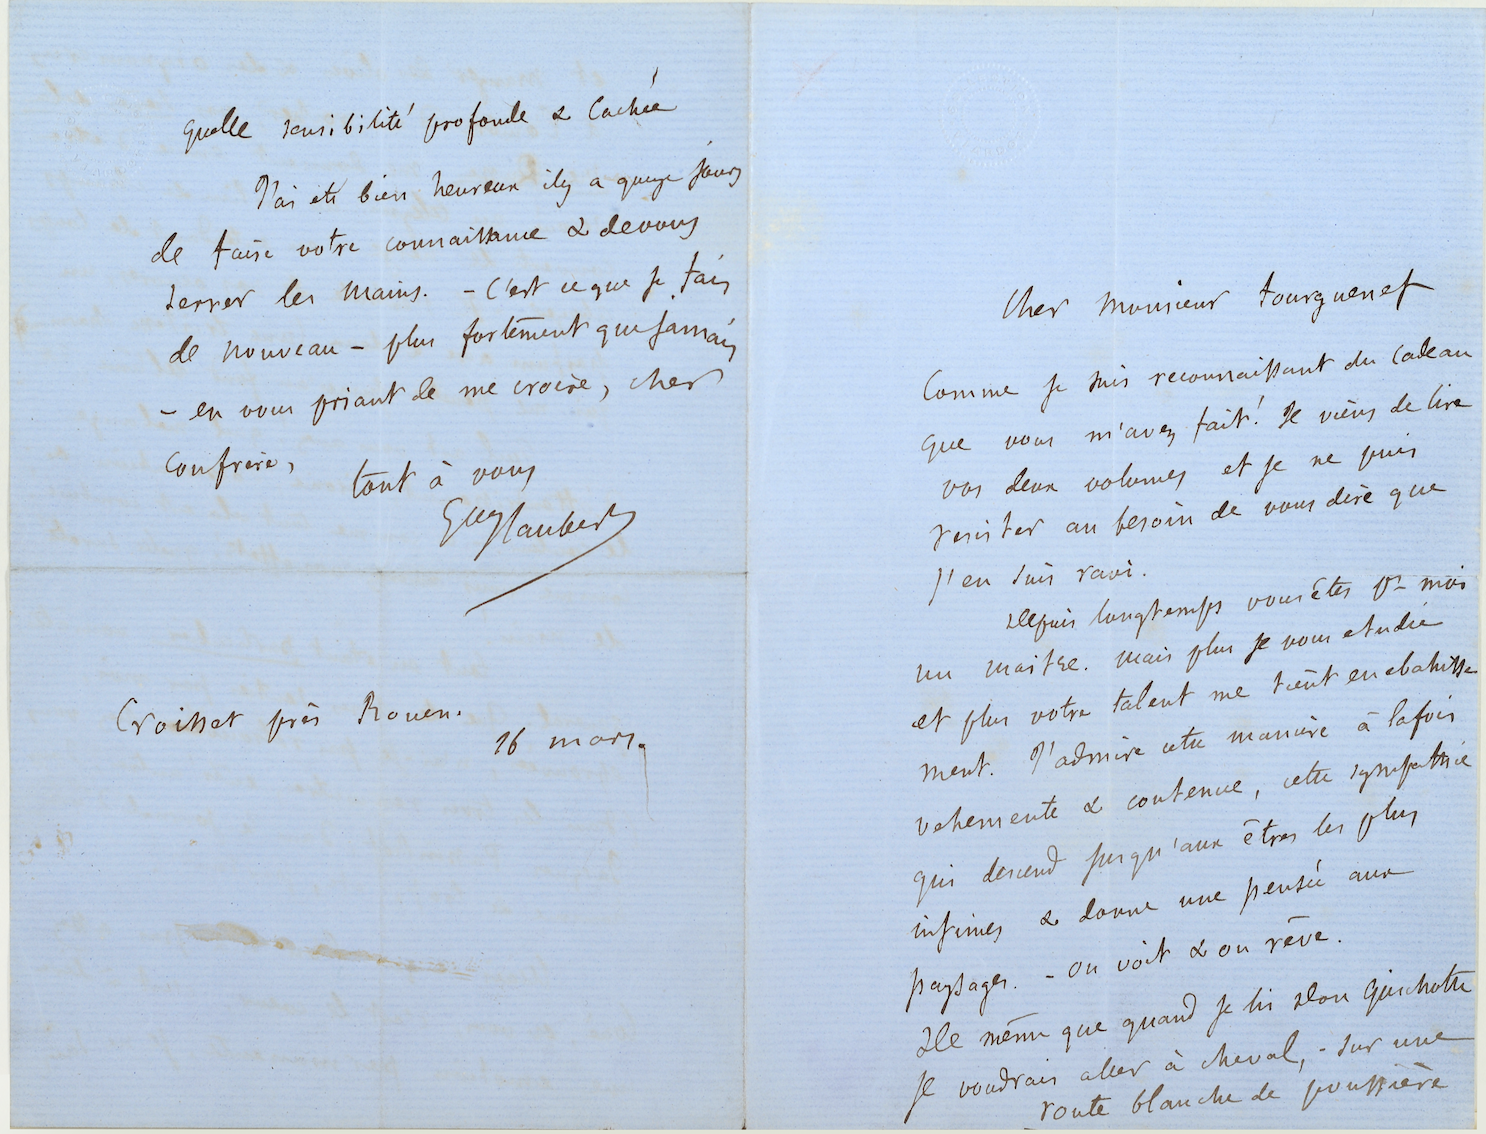 Cher Monsieur Tourguenef
Comme je suis reconnaissant du cadeau
que vous m'avez fait! Je viens de lire
vos deux volumes et je ne puis
resister au besoin de vous dire que
j'en suis ravi.
Depuis longtemps vous êtes pr moi
un maitre. mais plus je vous etudie
et plus votre talent me tient en ebahisse
ment. J'admire cette manière à la fois
vehemente & contenue, cette sympathie
qui descend jusqu'aux êtres les plus
infimes & donne une pensée aux
paysages. - On voit & on rêve.
De même que quand je lis Don Quichotte
je voudrais aller à cheval, - sur une
route blanche de poussière
quelle sensibilité profonde & cachée
J'ai eté bien heureux il y a quinze jours
de faire votre connaissance & de vous
serrer les mains. - C'est ce que je fais
de nouveau - plus fortement que jamais
- en vous priant de me croire, cher
confrère,
tout à vous
Gve flaubert
Croisset près Rouen.
16 mars.